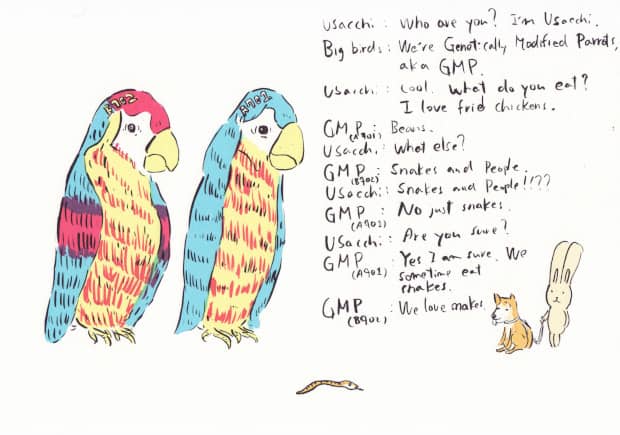 Usacchi : Who are you? I'm Usacchi.
Big birds : We're Genetically Modified Parrots,
aka GMP.
Usacchi : Cool. What do you eat?
I love fried chickens.
GMP : Beans.
(A901)
Usacchi : What else?
GMP : Snakes and People.
(B902)
Usacchi : Snakes and People!!??
GMP : No just snakes.
(A902)
Usacchi : Are you sure?
GMP : Yes I am sure. We
(A901) sometime eat
snakes.
GMP : We love snakes.
(B902)